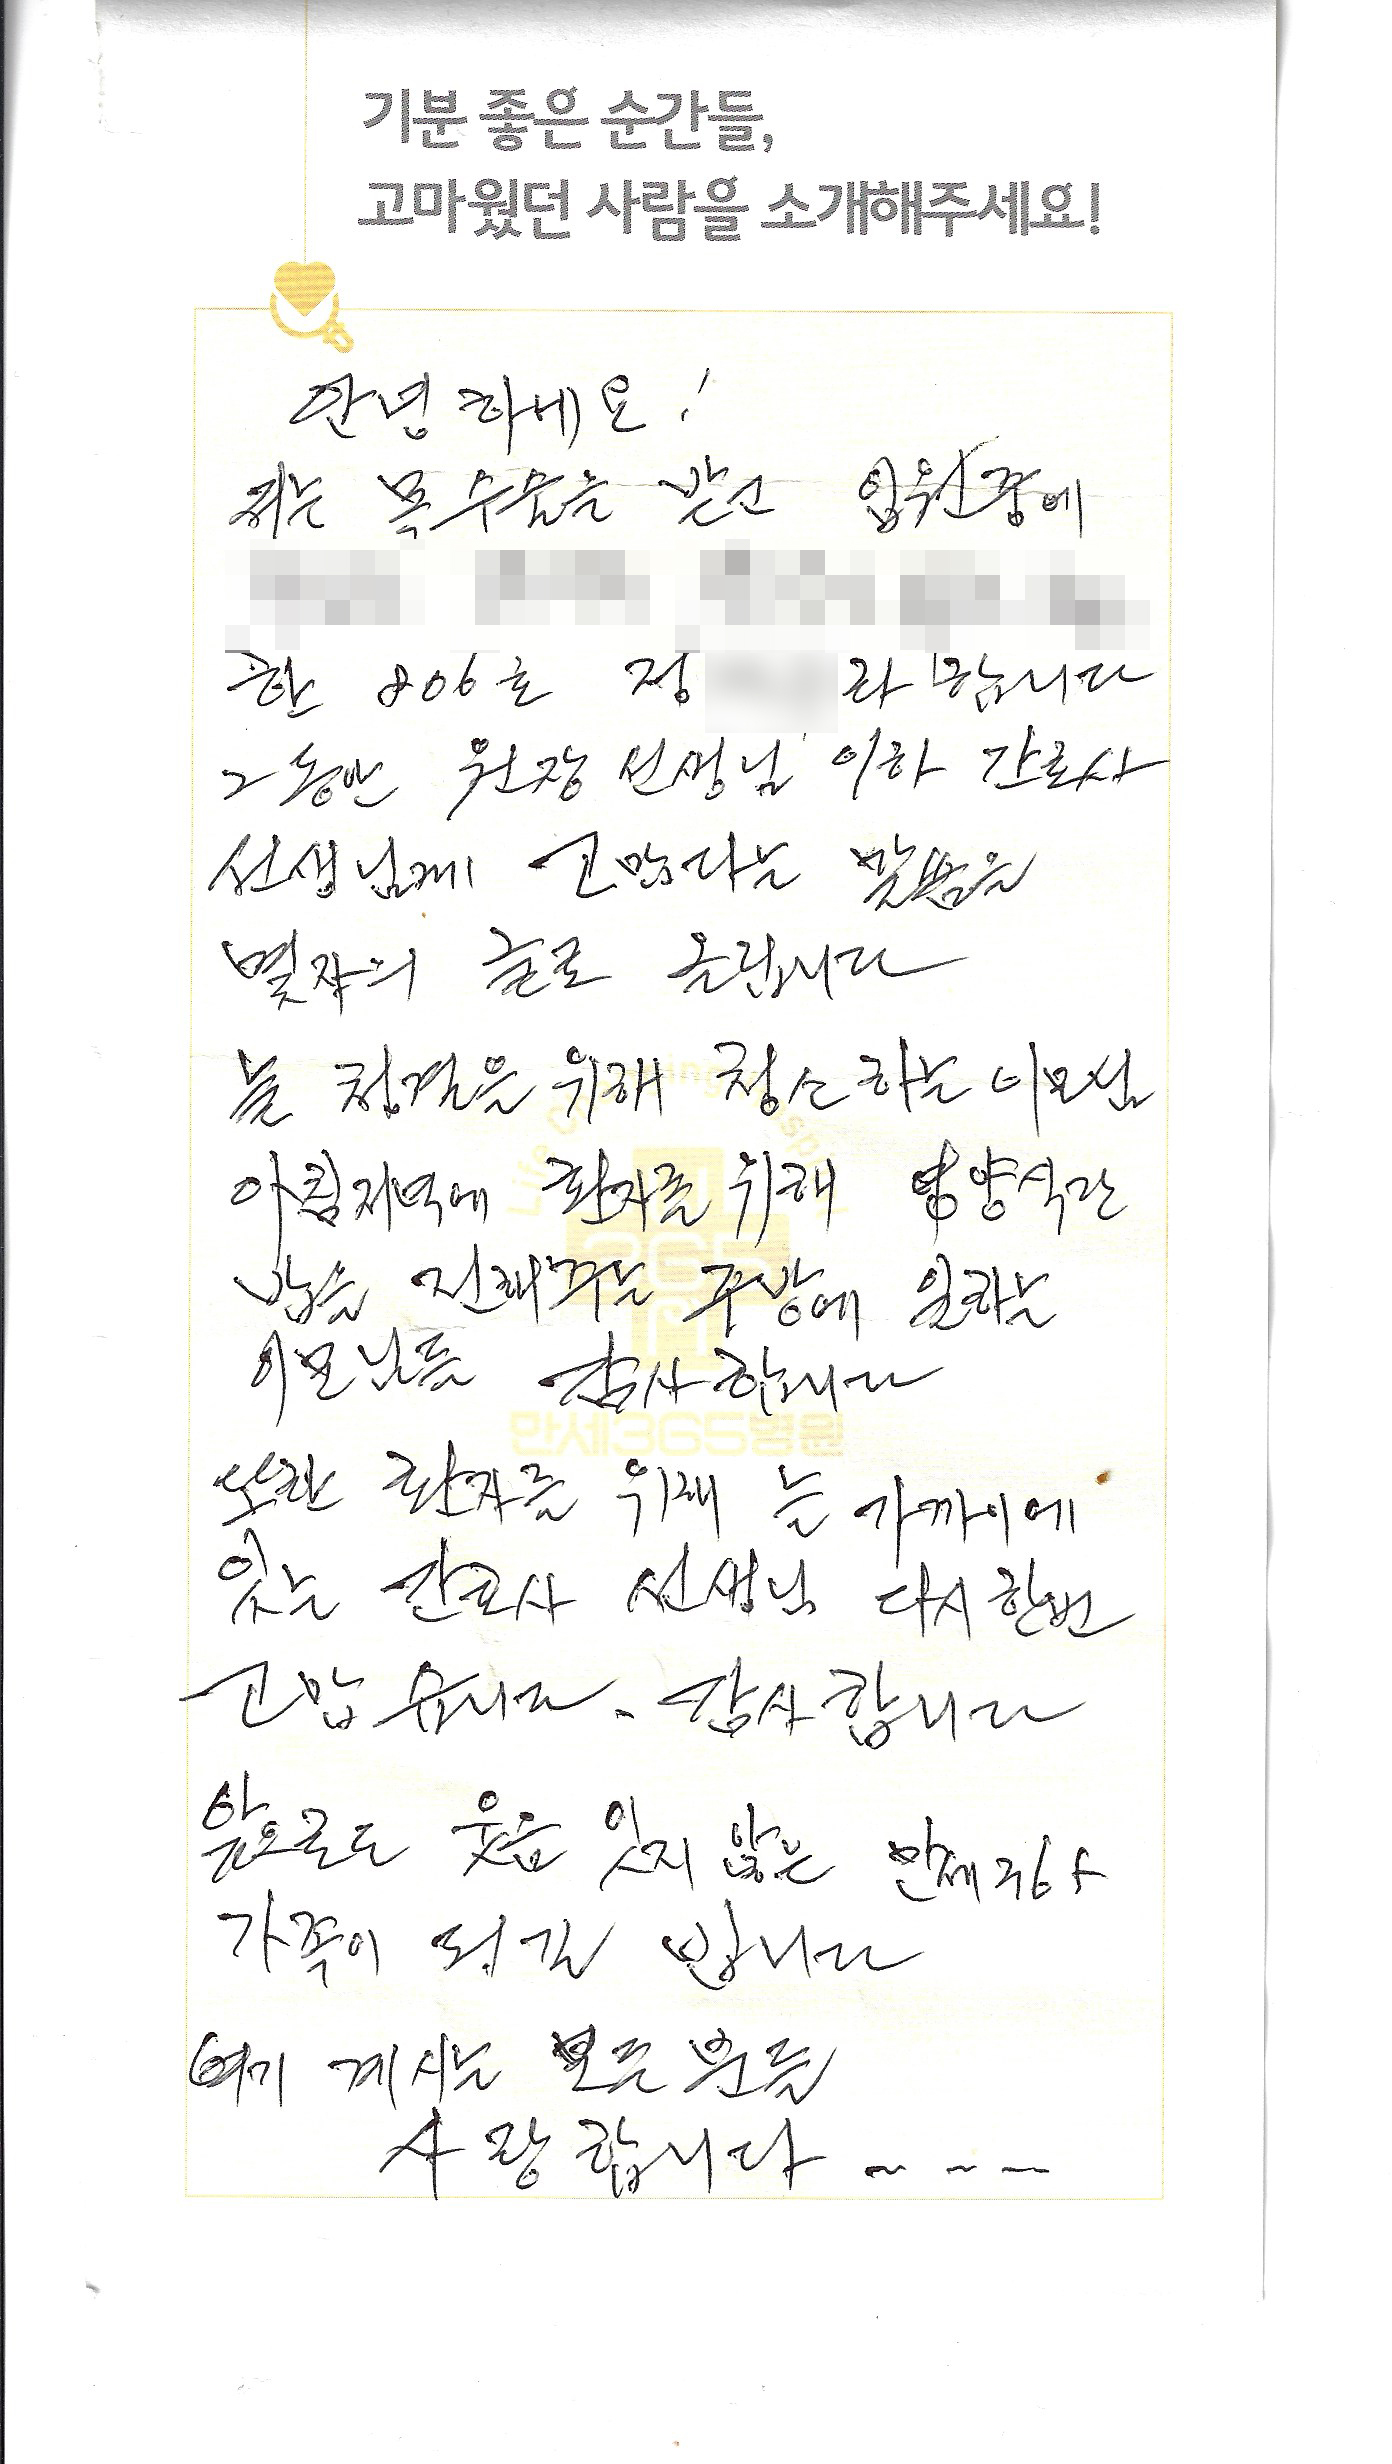 기분 좋은 순간들,
고마웠던 사람을 소개해주세요!
안녕하세요!
저는 목수술을 받고 입원중에
한 806호 정 라 합니다
그동안 원장선생님 이하 간호사
선생님께 고맙다는 말씀을
몇자의 글로 올립니다
늘 청결을 위해 청소하는 이모님
아침저녁에 환자를 위해 영양식단
밥을 전해주는 주방에 일하는
이모님들 감사합니다
만세365병원
또한 환자를 위해 늘 가까이에
있는 간호사 선생님 다시한번
고맙습니다. 감사합니다
앞으로도 웃음 잊지 않는 만세365
가족이 되길 빕니다
여기 계시는 모든분들
사랑합니다 ~ ~ ~